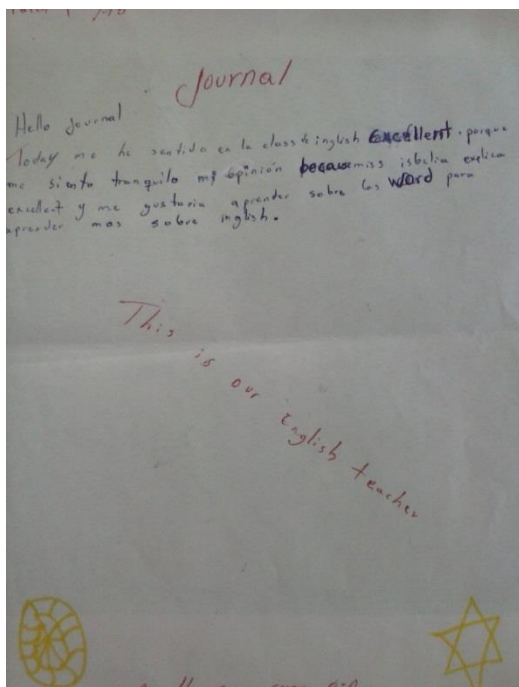 Journal
Hello Journal
Today me he sentido en la class inglish Excellent. porque
me siento tranquilo my opinión because miss isbelia explica
excellent y me gustaria aprender sobre los word para
aprender mas sobre inglish.
This is our English teacher